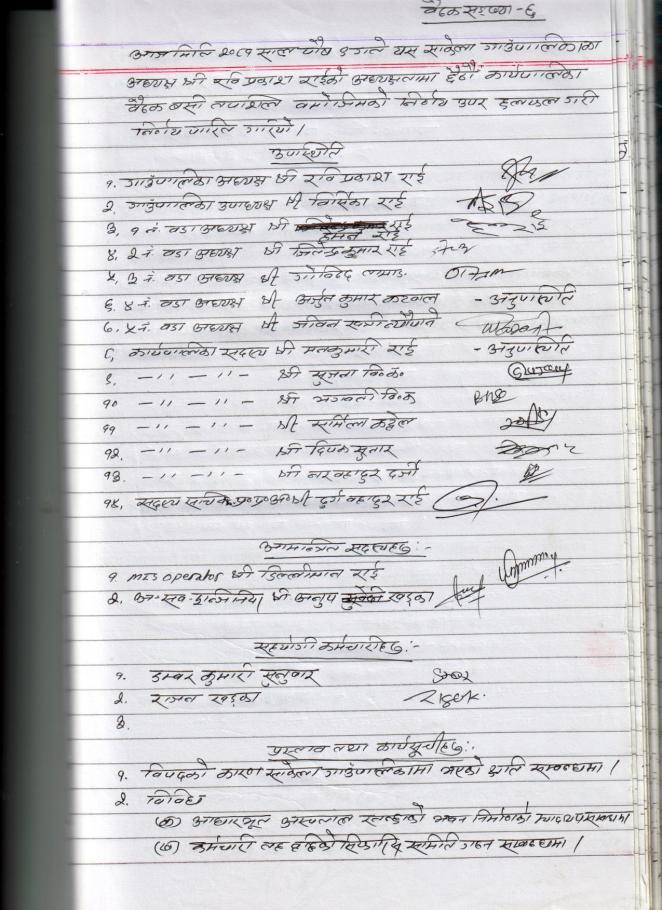 बैठक सङ्ख्या - ६
आज मिति २०८१ साल पौष ६ गते यस साकेला गाउँपालिकाका
अध्यक्ष श्री रवि प्रकाश राईको अध्यक्षतामा छैठौं कार्यपालिका
बैठक बसी तपशिल बमोजिमको निर्णय उपर छलफल गरी
निर्णय पारित गरियो।
उपस्थिति
१. गाउँपालिका अध्यक्ष श्री रवि प्रकाश राई
२. गाउँपालिका उपाध्यक्ष श्री राई
३. १ नं. वडा अध्यक्ष श्री राई
राई
४. २ नं. वडा अध्यक्ष श्री जितेन्द्र कुमार राई
५. ३ नं. वडा अध्यक्ष श्री गोविन्द
६. ४ नं. वडा अध्यक्ष श्री अर्जुन कुमार कटवाल - अनुपस्थिति
७. ५ नं. वडा अध्यक्ष श्री जीवन
८. कार्यपालिका सदस्य श्री मनकुमारी राई - अनुपस्थिति
९. -"- -"- श्री सुजना वि.क.
१० -"- -"- श्री भगवती वि.क
११ -"- -"- श्री सर्मिला कट्टेल
१२. -"- -"- श्री दिपक सुनार
१३. -"- -"- श्री नरबहादुर दर्जी
१४. सदस्य सचिव प्र.प्र.अ. श्री दुर्ग बहादुर राई
आमान्त्रित सदस्यहरु :-
१. MIS operator श्री डिल्लीमान राई
२. अ-सब-इन्जिनियर श्री अनुप खड्का
सहयोगी कर्मचारीहरु :-
१. डम्बर कुमारी सुनुवार
२. राजन खड्का
३.
प्रस्ताव तथा कार्यसूचीहरु :-
१. विपदको कारण साकेला गाउँपालिकामा भएको क्षति सम्बन्धमा।
२. विविध
(क) आधारभूत अस्पताल भवन निर्माणको सम्बन्धमा।
(ख) कर्मचारी समिति गठन सम्बन्धमा।